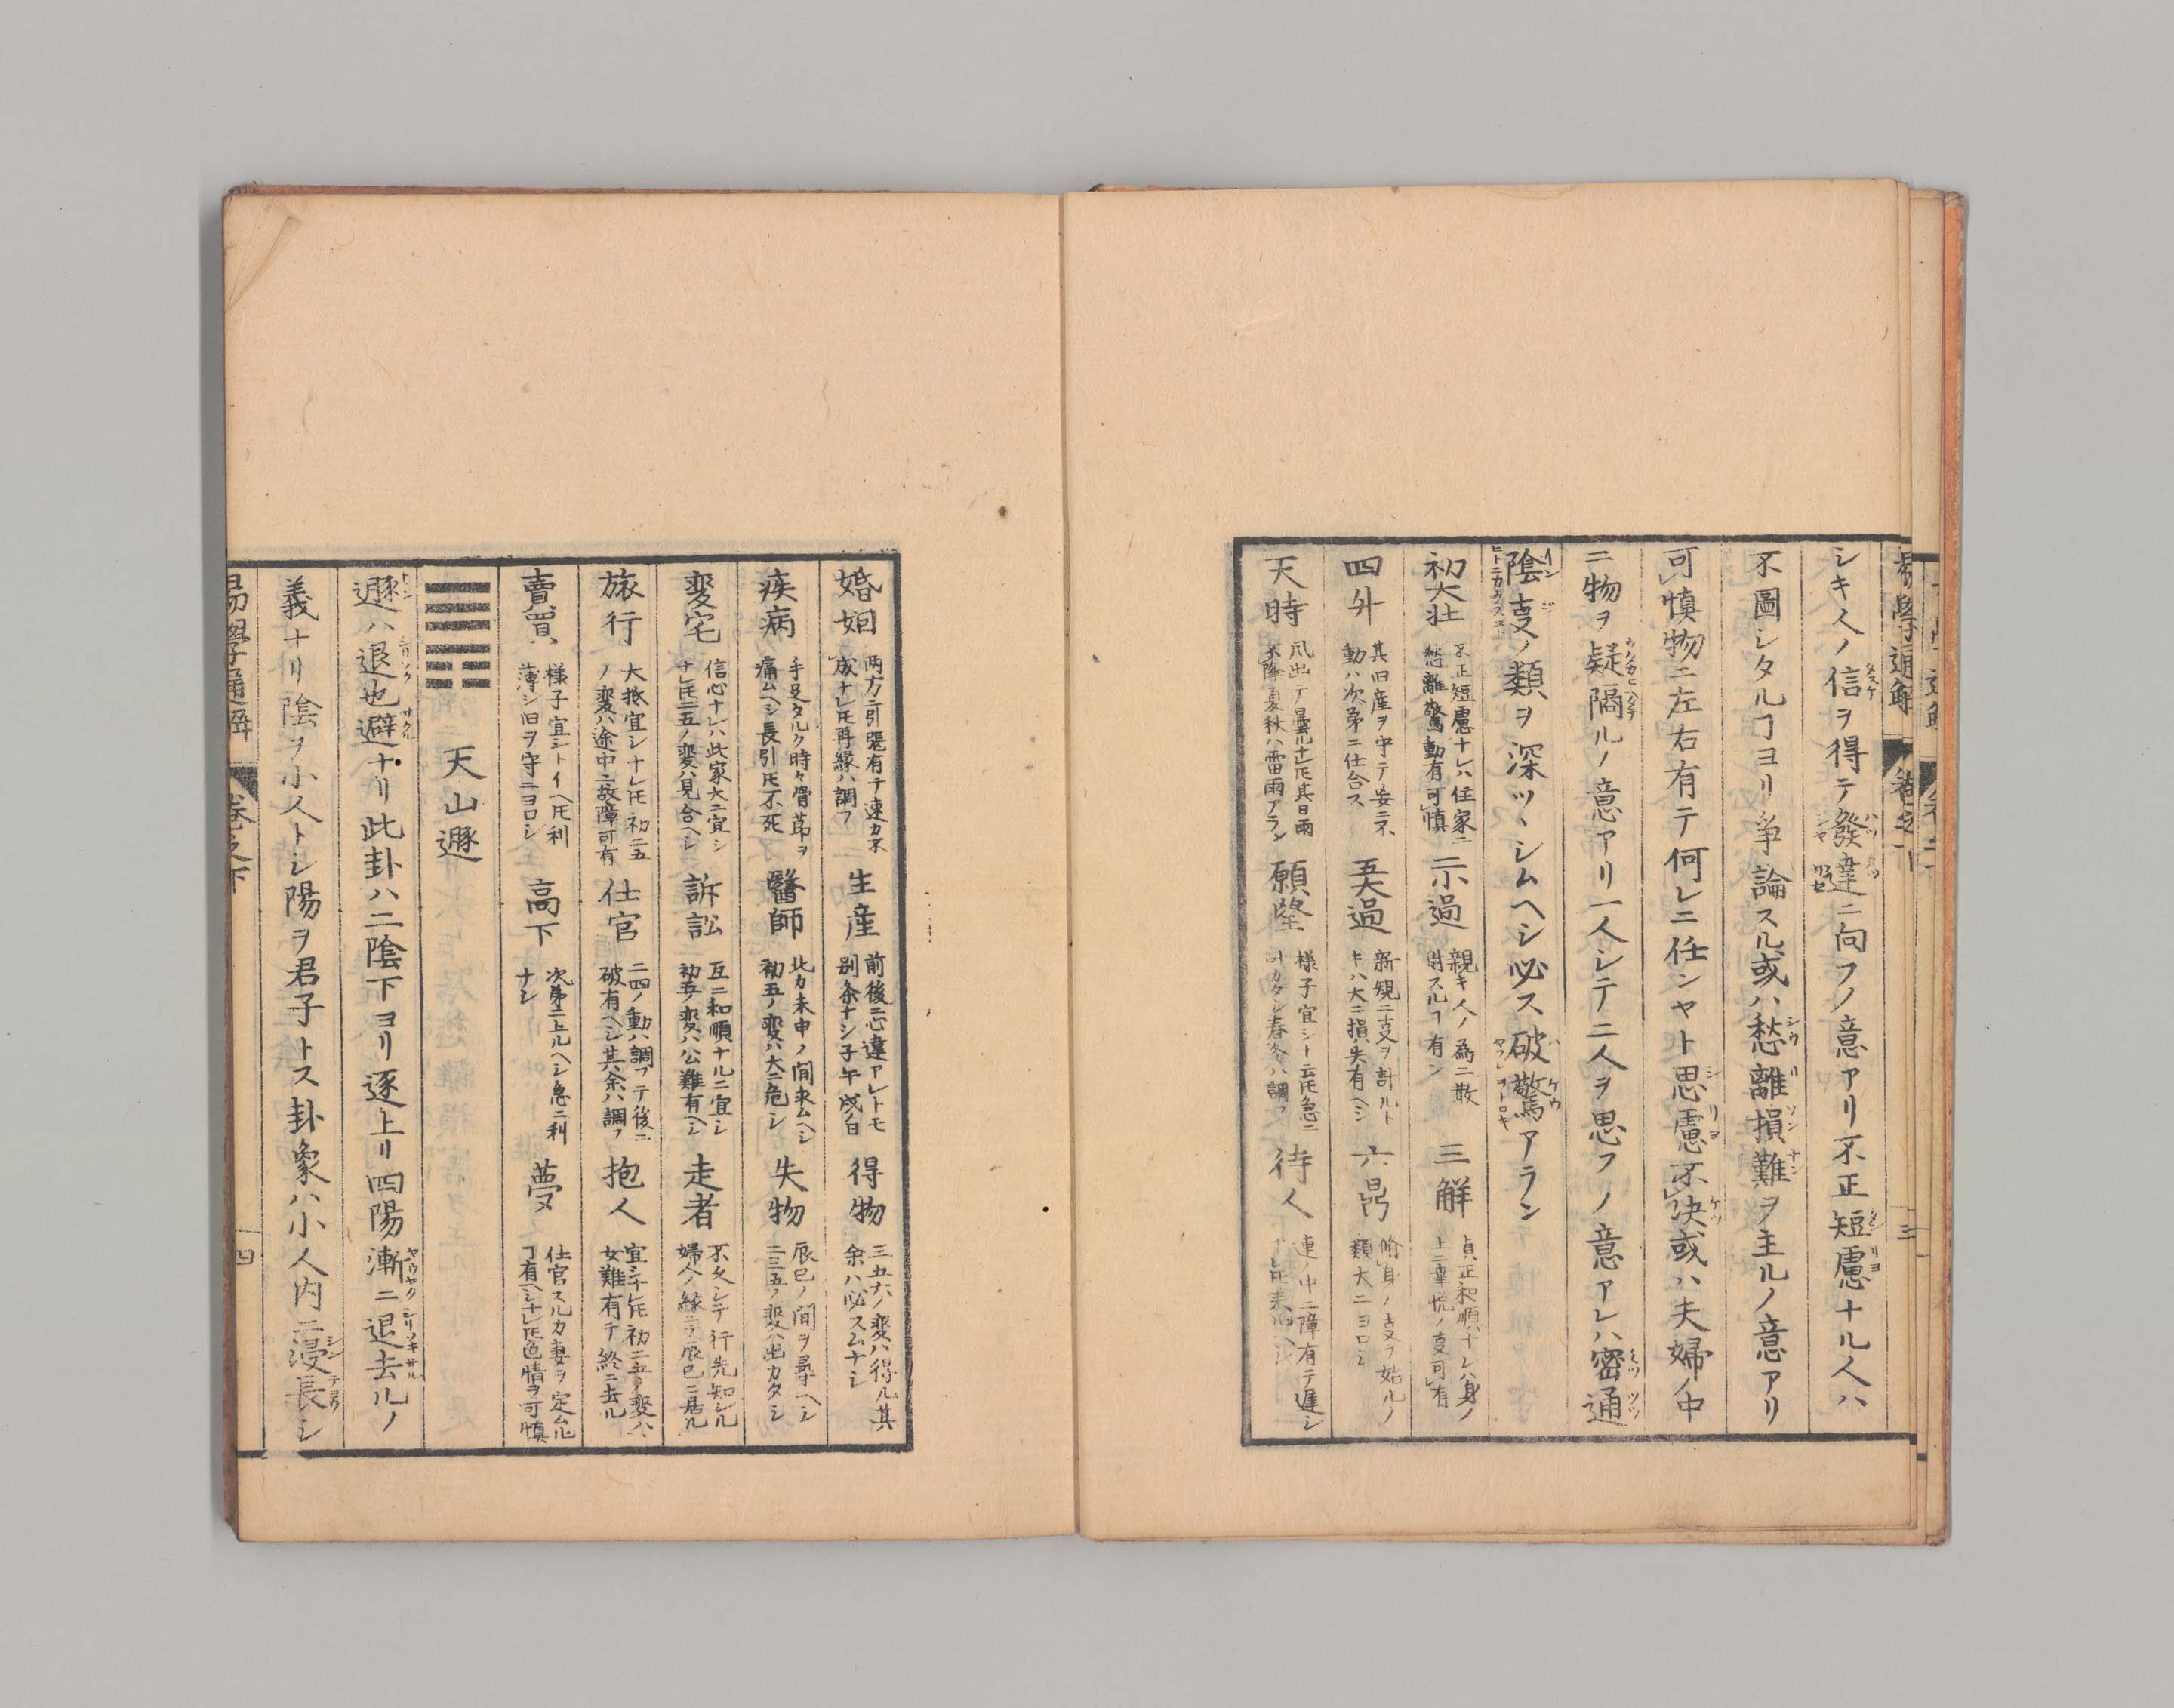 易學通解 卷之下 三
シキ人ノ信ヲ得テ發達ニ向フノ意アリ不正短慮ナル人ハ
不圖シタルヿヨリ爭論スル或ハ愁離損難ヲ主ルノ意アリ
可慎物ニ左右有テ何レニ任ンヤト思慮不決或ハ夫婦ノ中
ニ物ヲ疑隔ルノ意アリ一人シテ二人ヲ思フノ意アレハ密通
陰支ノ類ヲ深ツヽシムヘシ必ス破驚アラン
初大壮
不正短慮ナレハ住家ニ
愁離驚動有可慎
二小過
親キ人ノ為ニ散
財スルヿ有ン
三解
貞正和順ナレハ身ノ
上ニ喜悦ノ支可有
四外
其旧産ヲ守テ安ニス
動ハ次第ニ仕合ス
五大過
新規ニ支ヲ計ルト
キハ大ニ損失有ヘシ
六鼎
ノ支ヲ始ルノ
類大ニヨロシ
天時
風出テ曇ルナレ𪜈其日雨
不降夏秋ハ雷雨アラン
願望
様子宜シト云𪜈急ニ
叶カタシ春冬ハ調フ
待人
連ノ中ニ障有テ遅シ
婚姻
両方ニ引張有テ速カ不
成ナレ𪜈再縁ハ調フ
生産
前後ニ心違アレトモ
別条ナシ子午戌ノ日
得物
三五六ノ変ハ得ル其
余ハ必スムナシ
疾病
手足タルク時々骨節ヲ
痛ムヘシ長引𪜈不死
醫師
北カ未申ノ間求ムヘシ
初五ノ変ハ大ニ危シ
失物
辰巳ノ間ヲ尋ヘシ
二三五ノ変ハ出カタシ
変宅
信心ナレハ此家大ニ宜シ
ナレ𪜈二五ノ変ハ見合ヘシ
訴訟
互ニ和順ナルニ宜シ
初五ノ変ハ公難有ヘシ
走者
不久シテ行先知レル
婦人ノ縁ニテ辰巳ニ居ル
旅行
大抵宜シナレ𪜈初二五
ノ変ハ途中ニ故障可有
仕官
二四ノ動ハ調フテ後ニ
破有ヘシ其余ハ調フ
抱人
宜シナレ𪜈初二五ノ変ハ
女難有テ終ニ去ル
賣買
様子宜シトイヘ𪜈利
薄シ旧ヲ守ニヨロシ
高下
次第ニ上ルヘシ急ニ利
ナシ
夢
仕官スルカ妻ヲ定ムル
ヿ有ヘシナレ𪜈色情ヲ可慎
天山遯
遯ハ退也避ナリ此卦ハ二陰下ヨリ逐上リ四陽漸ニ退去ルノ
義ナリ陰ヲ小人トシ陽ヲ君子トス卦象ハ小人内ニ浸長シ
易學通解 卷之下 四